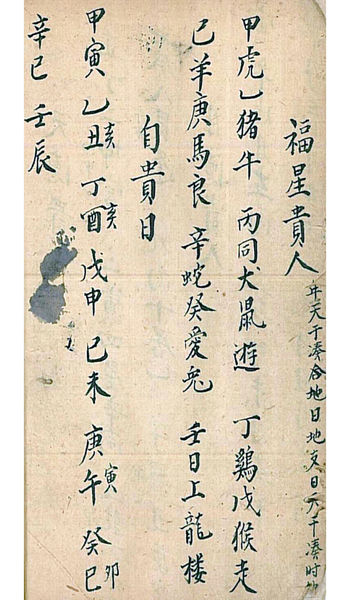 福星貴人 年天干湊合地日地支日天干湊時妙
甲虎乙猪牛 丙同犬鼠遊 丁鷄戊猴走
己羊庚馬良 辛蛇癸愛兎 壬日上龍楼
自貴日
甲寅 乙丑亥 丁酉亥 戊申 己未 庚午寅 癸巳卯
辛巳 壬辰